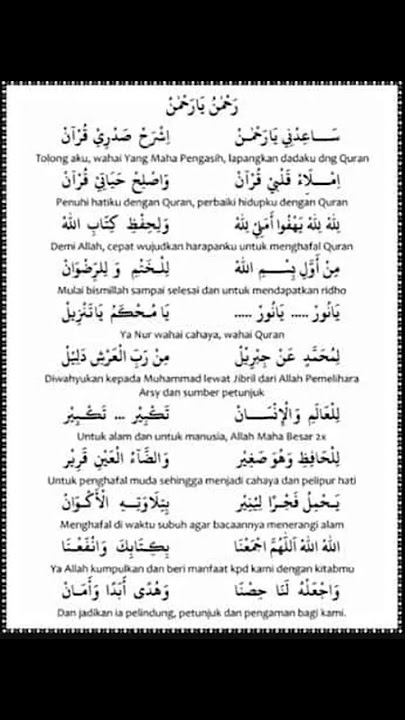 رَحْمٰنُ يَارَحْمٰنْ
سَـاعِدْنِي يَارَحْمٰـنْ اِشْرَحْ صَدْرِيْ قُرْآنْ
Tolong aku, wahai Yang Maha Pengasih, lapangkan dadaku dng Quran
اِمْـلَاءْ قَلْبِيْ قُرْآنْ وَاصْلِحْ حَيَاتِيْ قُرْآنْ
Penuhi hatiku dengan Quran, perbaiki hidupku dengan Quran
لِلهْ لِلهْ يَهْفُوا أَمَلِيْ لِلهْ وَلِحِفْظِ كِتَابِ اللهْ
Demi Allah, cepat wujudkan harapanku untuk menghafal Quran
مِنْ أَوَّلِ بِسْــمِ اللهْ لِلْخَتْمِ وَ لِلرِّضْوَانْ
Mulai bismillah sampai selesai dan untuk mendapatkan ridho
يَانُورْ ..... يَانُورْ ..... يَا مُحْكَمْ يَاتَنْزِيلْ
Ya Nur wahai cahaya, wahai Quran
لِمُحَمَّدِ عَنْ جِبْرِيْلْ مِنْ رَبِّ الْعَرْشِ دَلِيْلْ
Diwahyukan kepada Muhammad lewat Jibril dari Allah Pemelihara
Arsy dan sumber petunjuk
لِلْعَالَمِ وَالْإِنْسَــانْ تَكْبِيْر ... تَكْبِيْر
Untuk alam dan untuk manusia, Allah Maha Besar 2x
لِلْحَافِظِ وَهْوَ صَغِيْر وَالضَّاءُ الْعَيْنِ قَرِيْر
Untuk penghafal muda sehingga menjadi cahaya dan pelipur hati
يَـحْمِلُ فَجْرًا لِيُنِيْر بِتِلَاوَتِـهِ الْأَكْـوَانْ
Menghafal di waktu subuh agar bacaannya menerangi alam
اَللهُ اَللهُ اَللّٰهُمَّ اجْمَعْنَا بِكِتَابِكَ وَانْفَعْـنَا
Ya Allah kumpulkan dan beri manfaat kpd kami dengan kitabmu
وَاجْعَلْهُ لَنَا حِصْنًا وَهُدًى أَبَدًا وَأَمَانْ
Dan jadikan ia pelindung, petunjuk dan pengaman bagi kami.